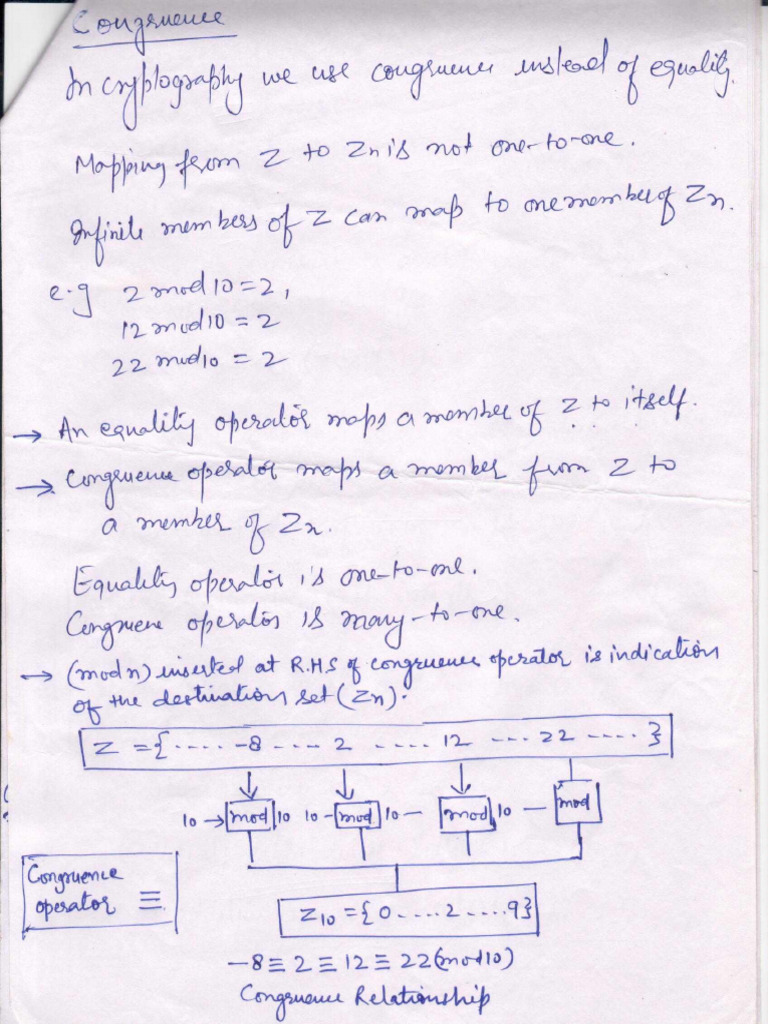 Congruence
In cryptography we use congruence instead of equality.
Mapping from Z to Zn is not one-to-one.
Infinite members of Z can map to one member of Zn.
e.g 2 mod 10 = 2,
12 mod 10 = 2
22 mod 10 = 2
→ An equality operator maps a member of Z to itself.
→ Congruence operator maps a member from Z to
a member of Zn.
Equality operator is one-to-one.
Congruence operator is many-to-one.
→ (mod n) inserted at R.H.S of congruence operator is indication
of the destination set (Zn).
Z = {..... -8 .... 2 ..... 12 .... 22 .....}
10 → mod 10 10 - mod 10 — mod 10 — mod
Congruence
operator ≡
Z10 = {0.....2.....9}
-8 ≡ 2 ≡ 12 ≡ 22 (mod 10)
Congruence Relationship